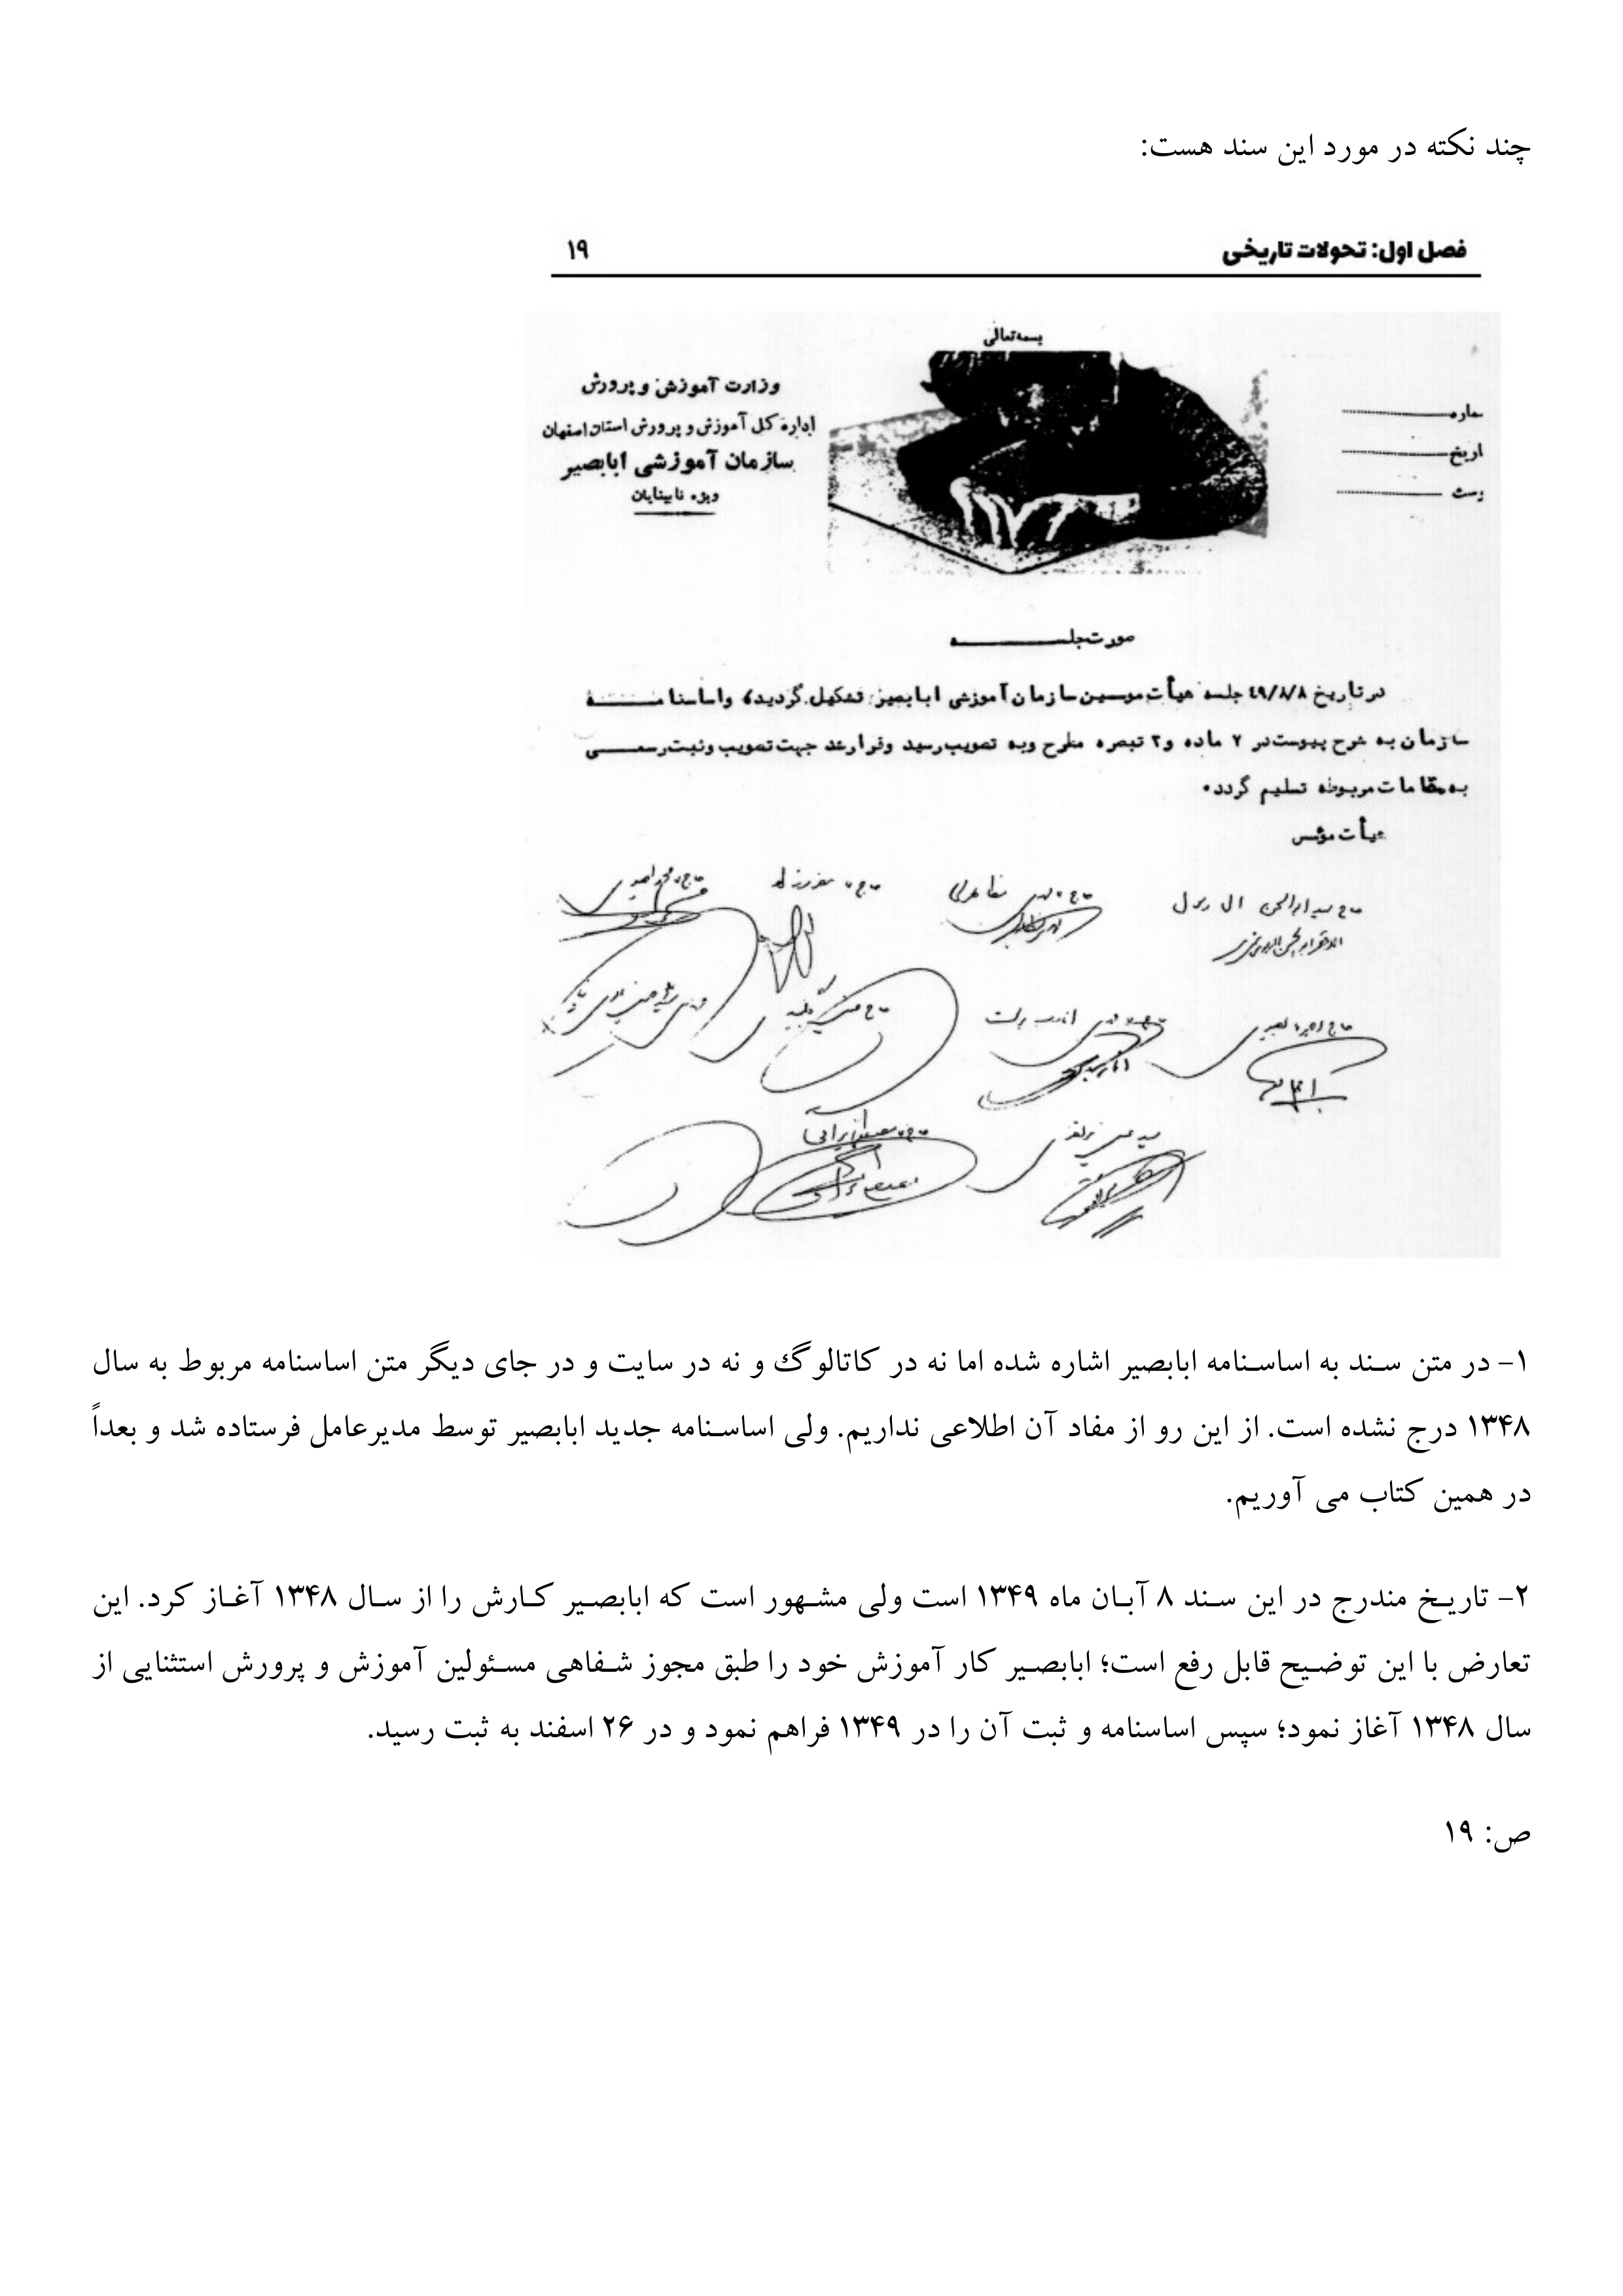 چند نکته در مورد این سند هست:
فصل اول: تحولات تاریخی
۱۹
بسمه‌تعالی
وزارت آموزش و پرورش
اداره کل آموزش و پرورش استان اصفهان
سازمان آموزشی ابابصیر
ویژه نابینایان
ماره
اریخ
وست
صورت‌جلسه
در تاریخ ۴۹/۸/۸ جلسه هیأت موسسین سازمان آموزشی ابابصیر تشکیل گردید، و اساسنامه
سازمان به شرح پیوست در ۷ ماده و ۲ تبصره مطرح و به تصویب رسید و قرار شد جهت تصویب و ثبت رسمی
به مقامات مربوطه تسلیم گردد.
هیأت مؤسس
حاج سید ابوالحسن آل رسول
حاج مهدی مظاهری
۱- در متن سند به اساسنامه ابابصیر اشاره شده اما نه در کاتالوگ و نه در سایت و در جای دیگر متن اساسنامه مربوط به سال
۱۳۴۸ درج نشده است. از این رو از مفاد آن اطلاعی نداریم. ولی اساسنامه جدید ابابصیر توسط مدیرعامل فرستاده شد و بعداً
در همین کتاب می آوریم.
۲- تاریخ مندرج در این سند ۸ آبان ماه ۱۳۴۹ است ولی مشهور است که ابابصیر کارش را از سال ۱۳۴۸ آغاز کرد. این
تعارض با این توضیح قابل رفع است؛ ابابصیر کار آموزش خود را طبق مجوز شفاهی مسئولین آموزش و پرورش استثنایی از
سال ۱۳۴۸ آغاز نمود؛ سپس اساسنامه و ثبت آن را در ۱۳۴۹ فراهم نمود و در ۲۶ اسفند به ثبت رسید.
ص: ۱۹